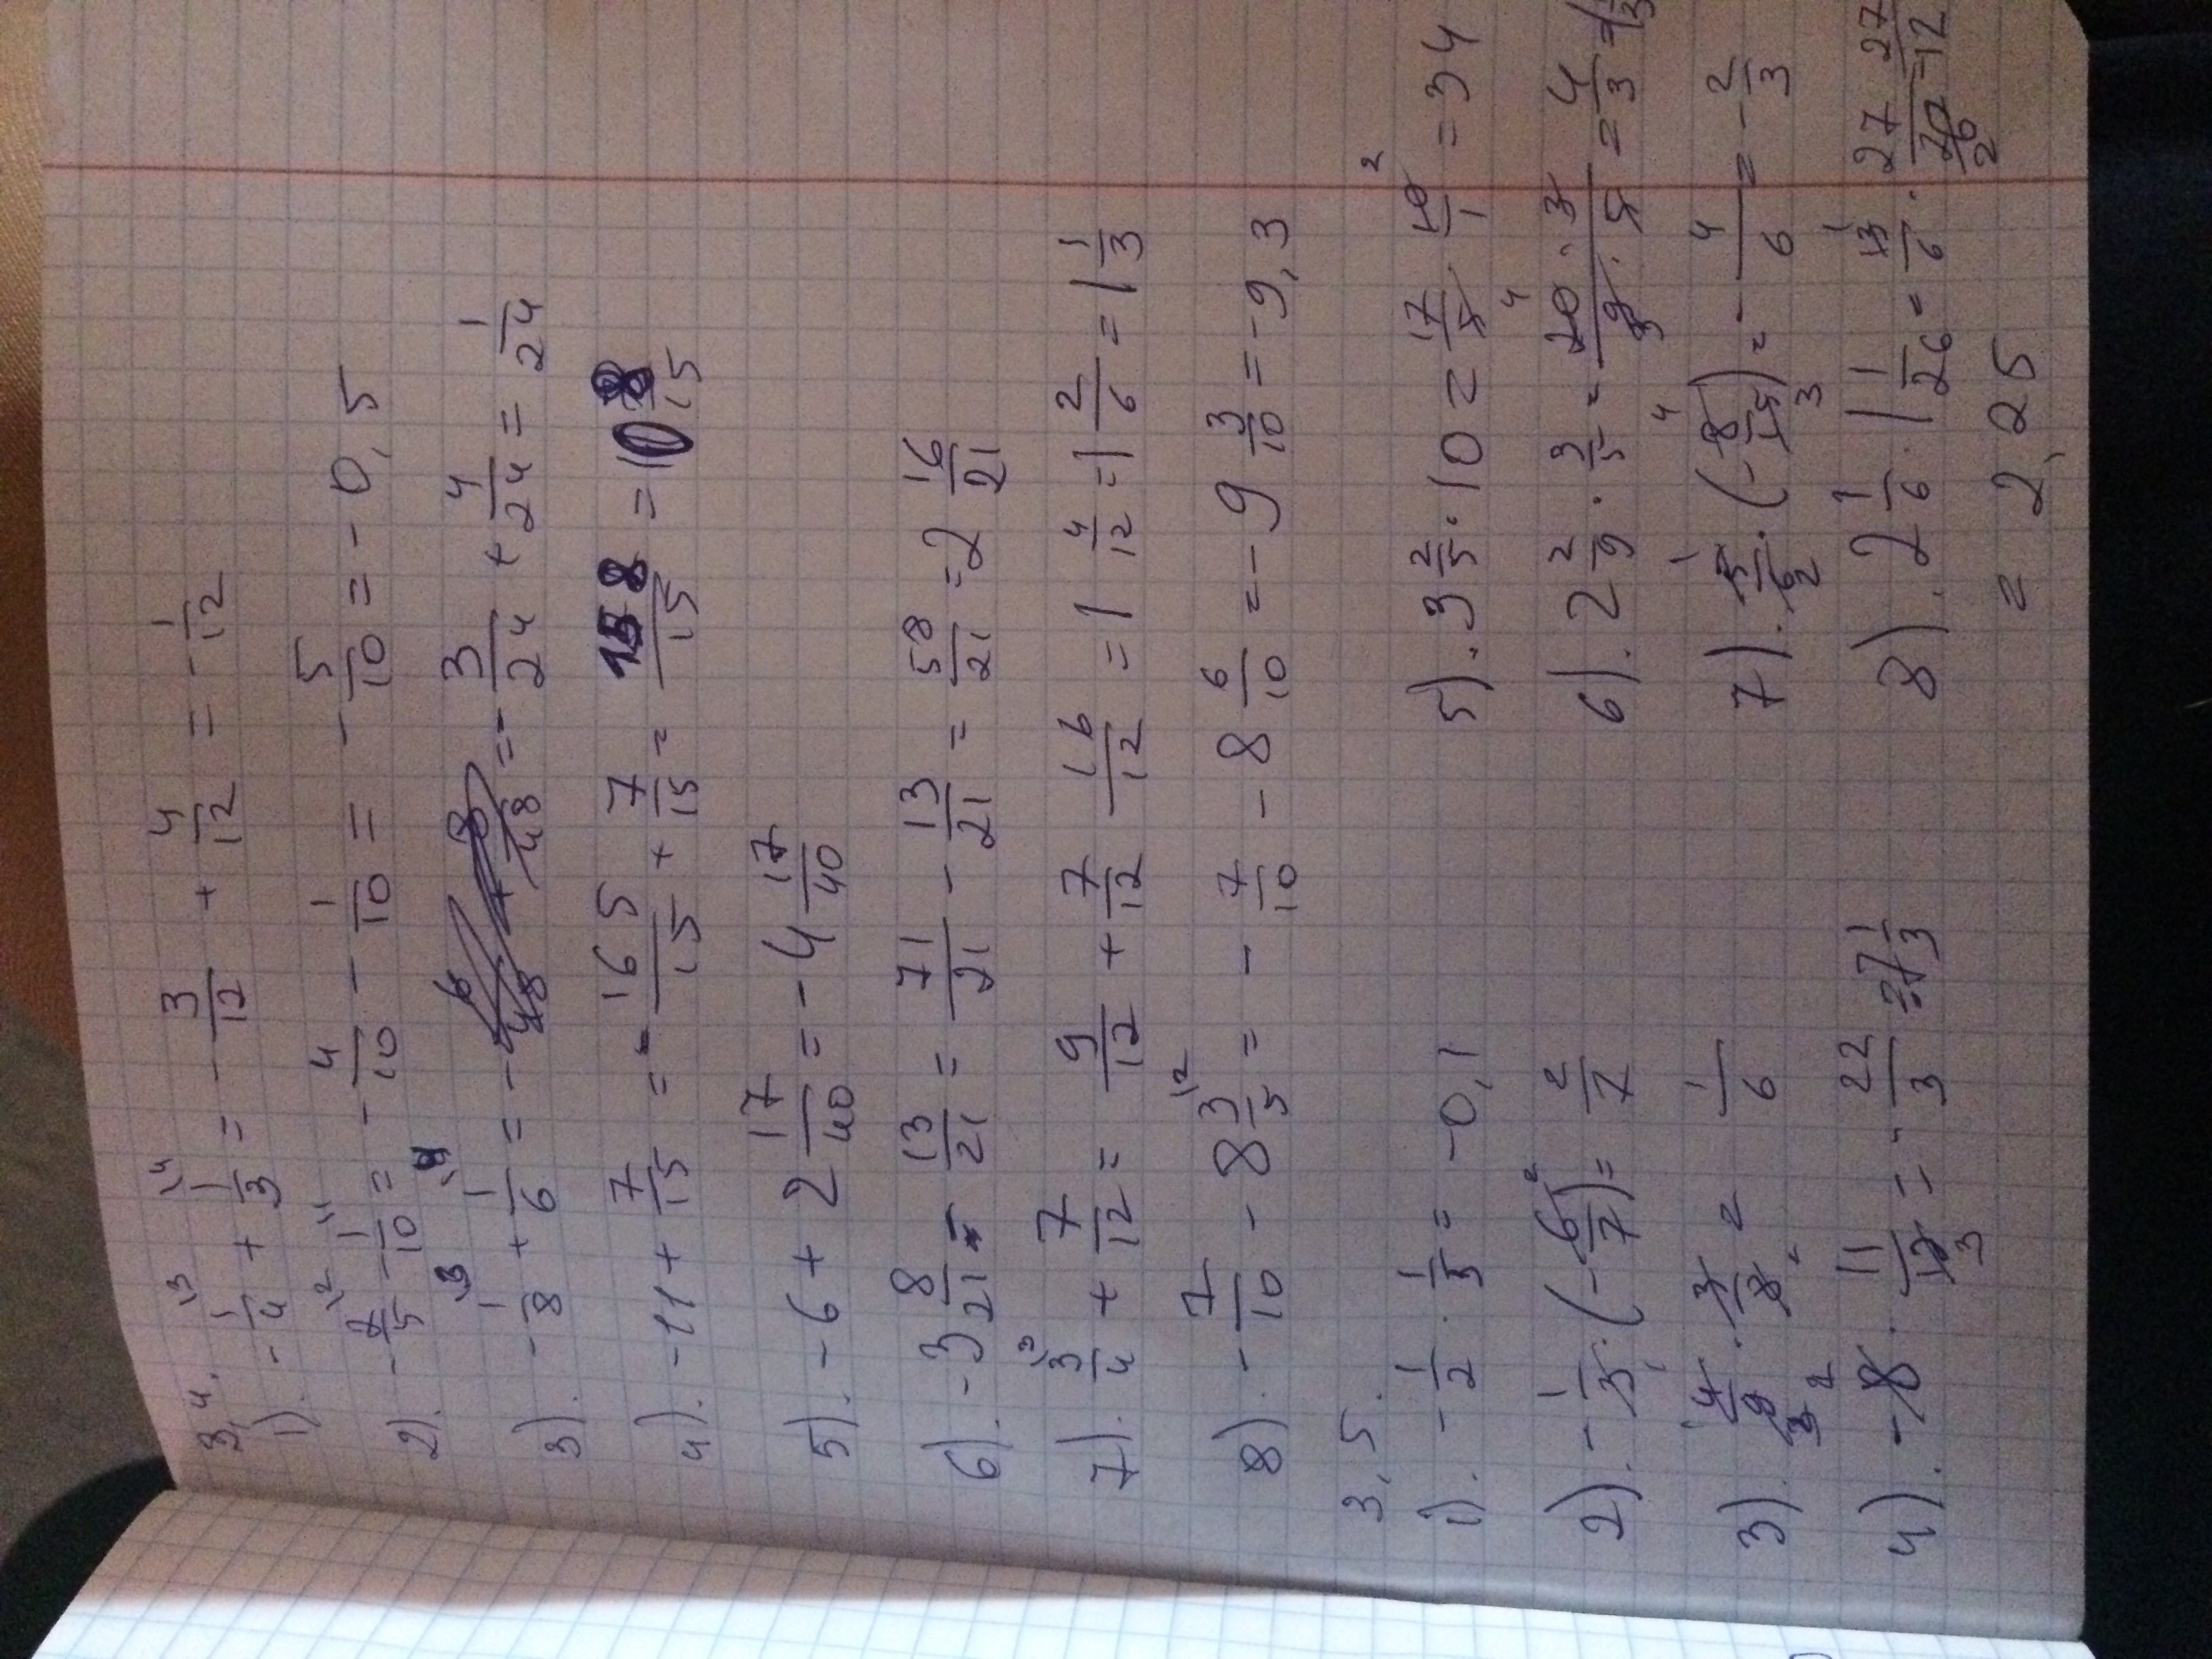 3,4.
1). -1/4 + 1/3 = -3/12 + 4/12 = -1/12
2). -2/5 - 1/10 = -4/10 - 1/10 = -5/10 = -0,5
3). -1/8 + 1/6 = -3/24 + 4/24 = 1/24
4). -11 + 7/15 = -165/15 + 7/15 = 158/15 = 10 8/15
5). -6 + 2 17/40 = -4 17/40
6). -3 8/21 - 13/21 = 71/21 - 13/21 = 58/21 = 2 16/21
7). 3/4 + 7/12 = 9/12 + 7/12 = 16/12 = 1 4/12 = 1 2/6 = 1 1/3
8). -7/10 - 8 3/5 = -7/10 - 8 6/10 = -9 3/10 = -9,3
3,5.
1). -1/2 · 1/3 = -0,1
2). -1/3 · (-6/7) = 2/7
3). 4/9 · 3/8 = 1/6
4). -8 · 11/12 = -22/3 = 7 1/3
5). 3 2/5 · 10 = 17/5 · 10/1 = 34
6). 2 2/9 · 3/5 = 20·3/9·5 = 4/3 = 1 1/3
7). 5/6 · (-8/15) = -4/6 = -2/3
8). 2 1/6 · 1 1/26 = 13/6 · 27/26 = 27/12
= 2,25